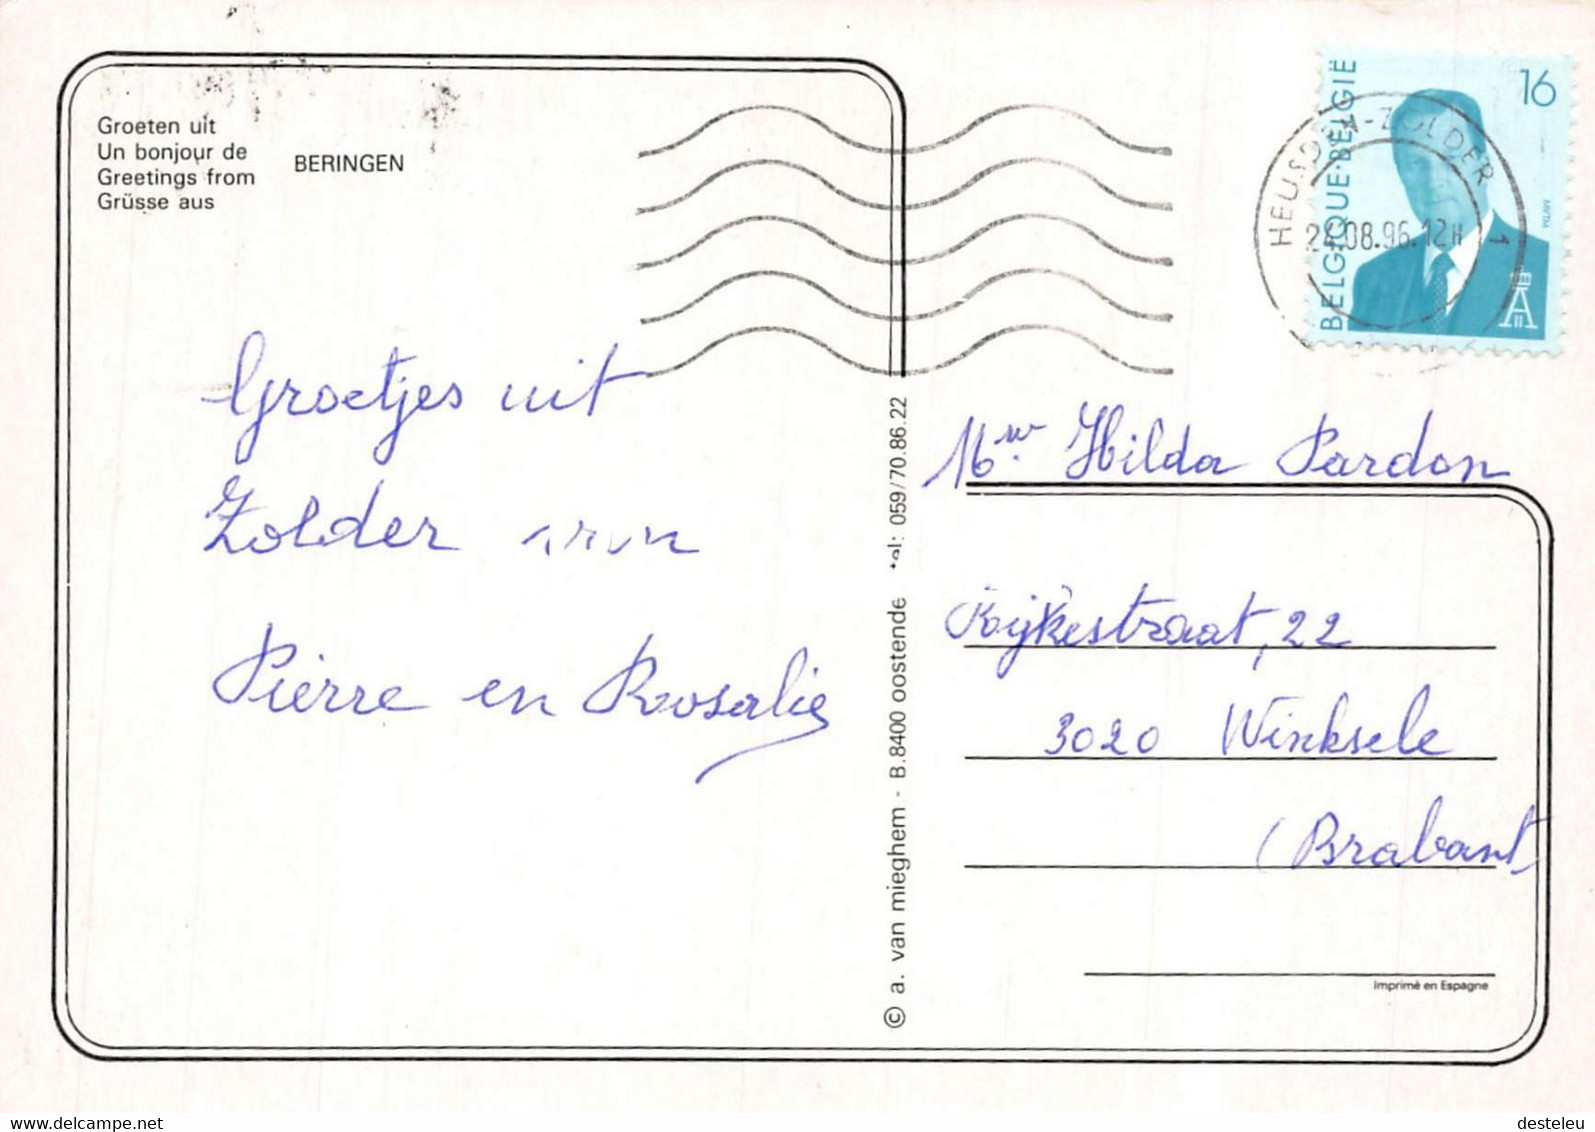 Groeten uit
Un bonjour de
Greetings from
Grüsse aus
BERINGEN
BELGIQUE·BELGIË
16
MVTM
HEUSDEN-ZOLDER
08.96.12H
1
Groetjes uit
Zolder van
Pierre en Rosalie
© a. van mieghem - B.8400 oostende tel: 059/70.86.22
Mw. Hilda Pardon
Rijkestraat, 22
3020 Winksele
(Brabant
Imprimé en Espagne
www.delcampe.net
desteleu